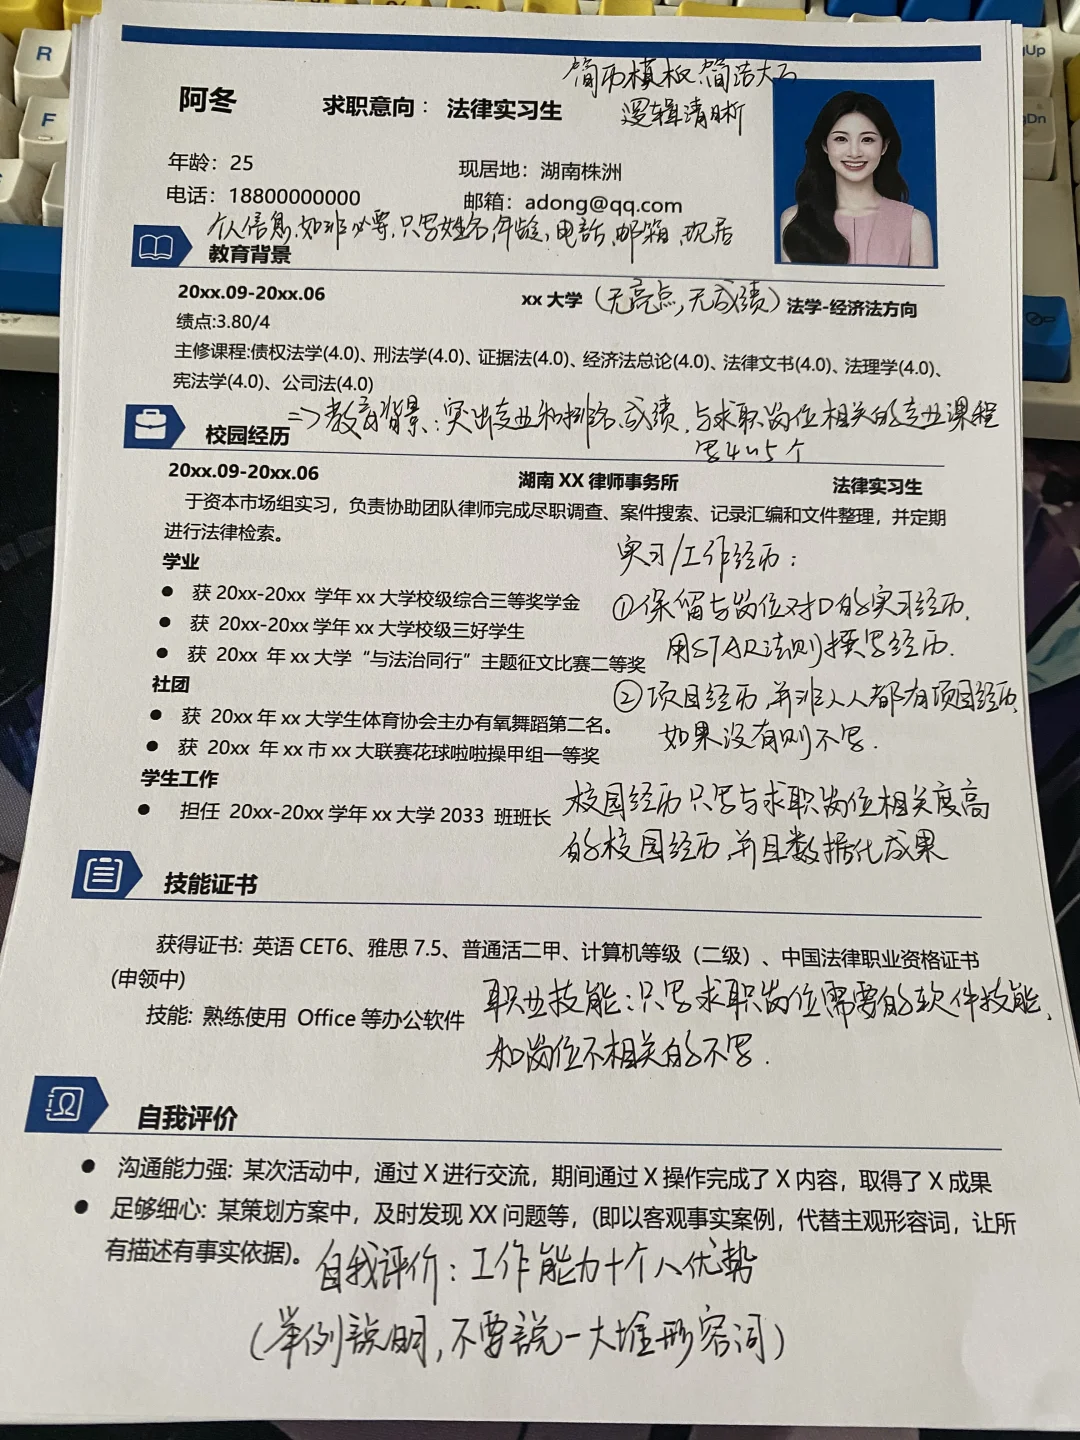 R
F
gUp
gDn
简历模板:简洁大方
逻辑清晰
阿冬
求职意向: 法律实习生
年龄: 25
现居地: 湖南株洲
电话: 18800000000
邮箱: adong@qq.com
个人信息,如非必要,只写姓名,年龄,电话,邮箱,现居
教育背景
20xx.09-20xx.06 xx 大学 (无亮点,无成绩) 法学-经济法方向
绩点:3.80/4
主修课程:债权法学(4.0)、刑法学(4.0)、证据法(4.0)、经济法总论(4.0)、法律文书(4.0)、法理学(4.0)、
宪法学(4.0)、公司法(4.0)
=>教育背景:突出专业和排名、成绩,与求职岗位相关的专业课程
写4~5个
校园经历
20xx.09-20xx.06 湖南 XX 律师事务所 法律实习生
于资本市场组实习，负责协助团队律师完成尽职调查、案件搜索、记录汇编和文件整理，并定期
进行法律检索。
实习/工作经历:
①保留与岗位对口的实习经历,
用STAR法则撰写经历.
②项目经历,并非人人都有项目经历,
如果没有则不写.
学业
● 获 20xx-20xx 学年 xx 大学校级综合三等奖学金
● 获 20xx-20xx 学年 xx 大学校级三好学生
● 获 20xx 年 xx 大学“与法治同行”主题征文比赛二等奖
社团
● 获 20xx 年 xx 大学生体育协会主办有氧舞蹈第二名。
● 获 20xx 年 xx 市 xx 大联赛花球啦啦操甲组一等奖
学生工作
● 担任 20xx-20xx 学年 xx 大学 2033 班班长
校园经历只写与求职岗位相关度高
的校园经历,并且数据化成果
技能证书
获得证书: 英语 CET6、雅思 7.5、普通活二甲、计算机等级（二级）、中国法律职业资格证书
(申领中)
技能: 熟练使用 Office 等办公软件
职业技能:只写求职岗位需要的软件技能,
和岗位不相关的不写.
自我评价
● 沟通能力强: 某次活动中，通过 X 进行交流，期间通过 X 操作完成了 X 内容，取得了 X 成果
● 足够细心: 某策划方案中，及时发现 XX 问题等，(即以客观事实案例，代替主观形容词，让所
有描述有事实依据)。
自我评价:工作能力+个人优势
(举例説明,不要説一大堆形容词)